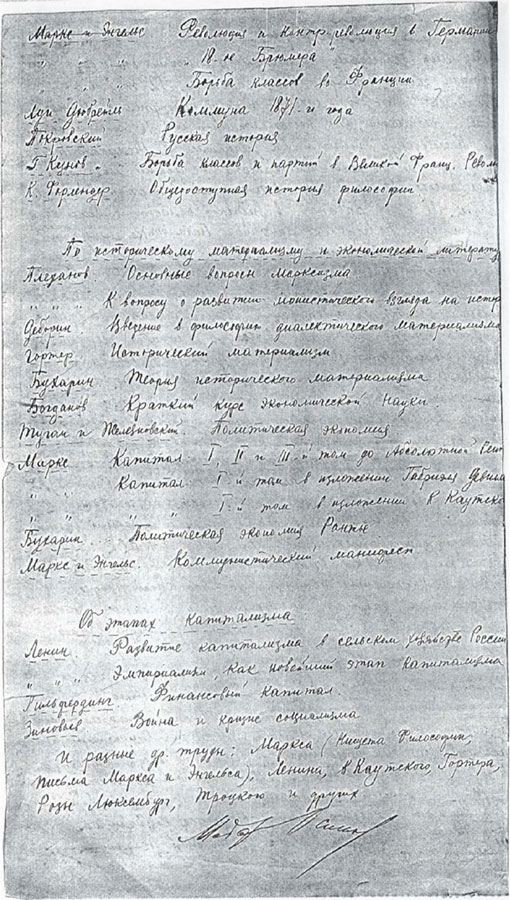 Маркс и Энгельс Революция и контрреволюция в Германии
" " " "18-ое Брюмера"
" " " Борьба классов во Франции
Луи Дюбрейль Коммуна 1871-и года
Покровский Русская история
Г Кунов. Борьба классов и партий в Великой Франц. Револ
К. Форлендер Общедоступная история философии
По историческому материализму и экономической литерату
Плеханов Основные вопросы Марксизма
" " " К вопросу о развитии монистического взгляда на истор
Деборин Введение в философию диалектического материализма
Гортер Исторический материализм
Бухарин Теория исторического материализма
Богданов Краткий курс экономической Науки.
Туган и Железновский. Политическая экономия
Маркс Капитал I, II и III-й том до Абсолютной Рент
" " Капитал I-й том в изложении Габриэля Девиля
" " " I-й том в изложении К Каутско
Бухарин Политическая экономия Рантье
Маркс и Энгельс. Коммунистический манифест
Об этапах капитализма
Ленин Развитие капитализма в сельском хозяйстве России
" " " Империализм, как новейший этап капитализма
Гильфердинг Финансовый капитал.
Зиновьев Война и кризис социализма
И разные др. труды: Маркса (Нищета Философии,
письма Маркса и Энгельса), Ленина, Каутского, Гортера,
Розы Люксембург, Троцкого и других